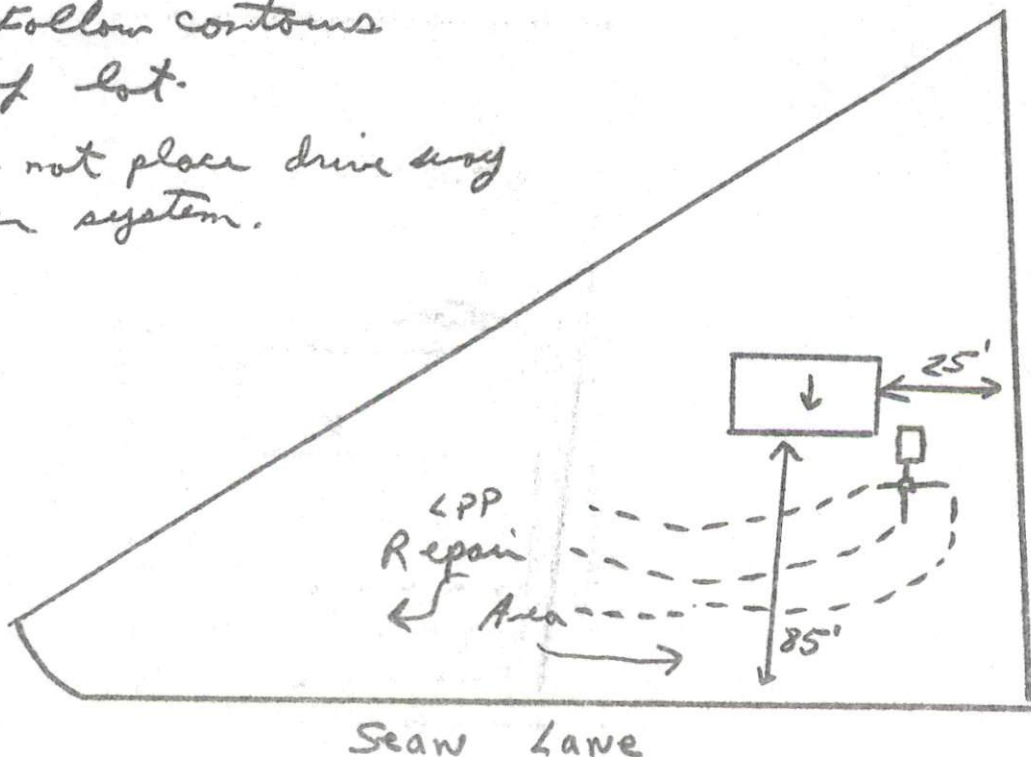 Follow contours
lot.
not place drive way
system.
25'
LPP
Repair
Area
85'
Sean Lane